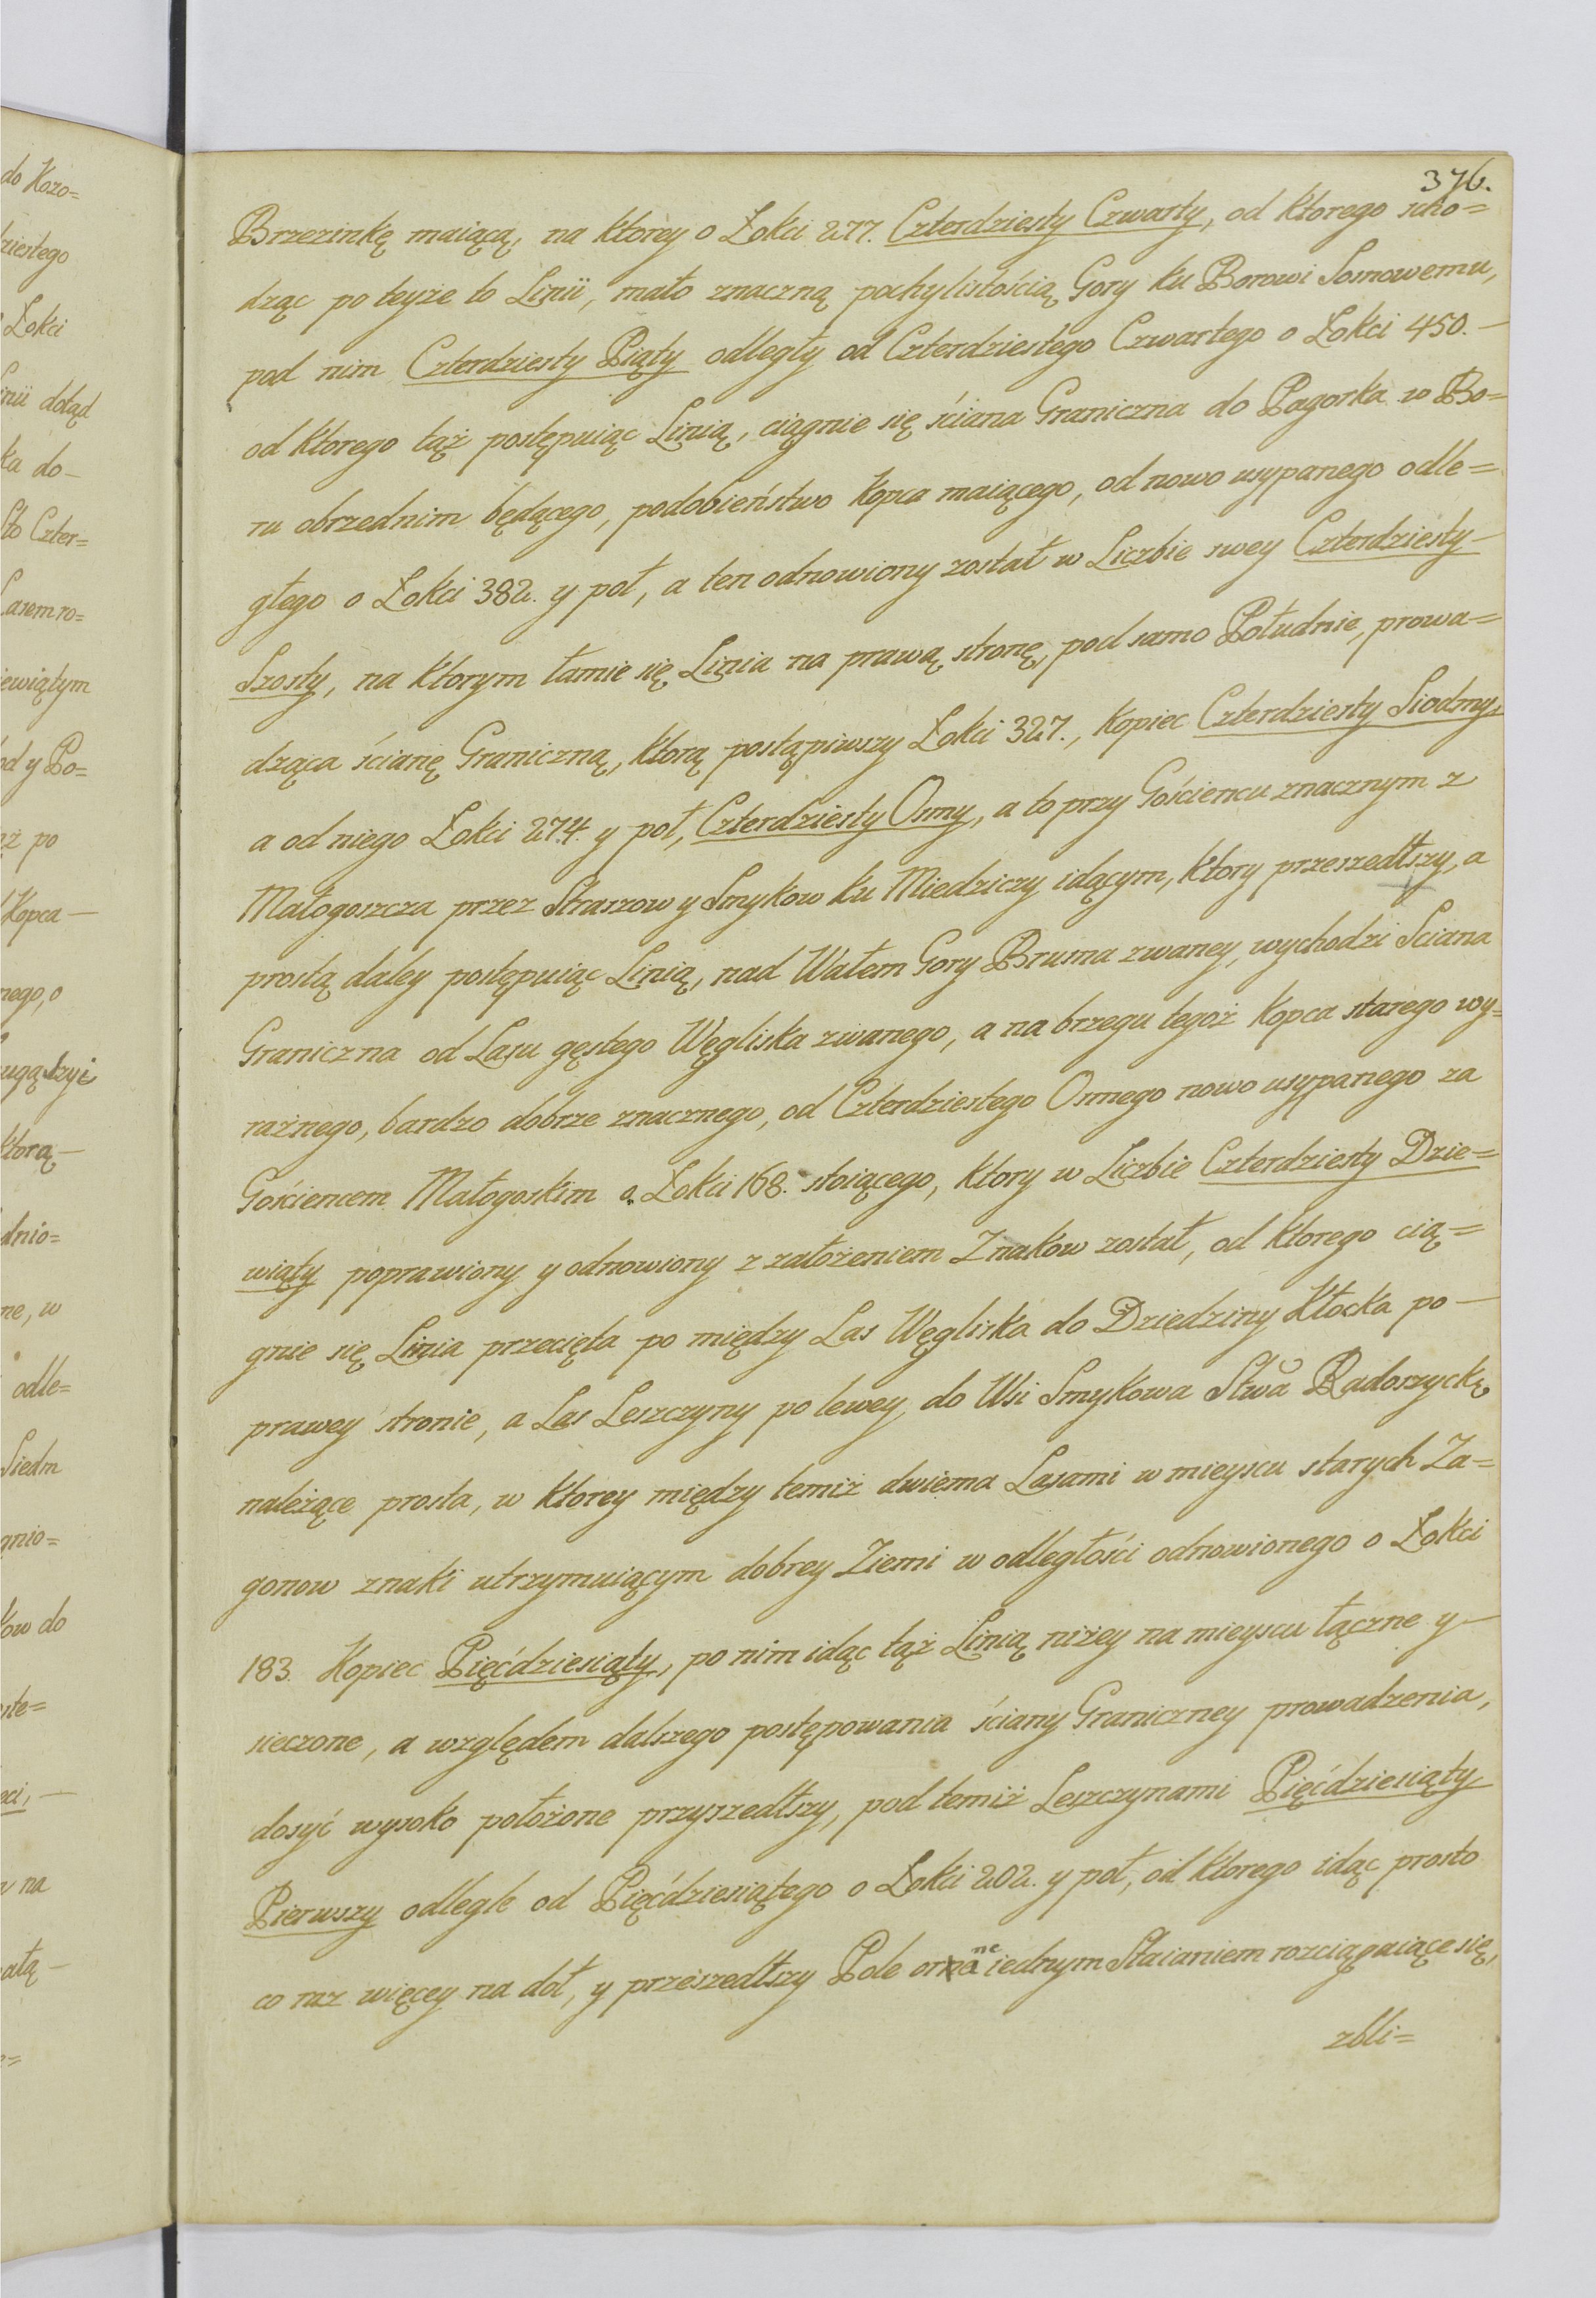 376.
Brzezinkę maiącą, na ktorey o Łokci 277. Czterdziesty Czwarty, od ktorego scho=
dząc po teyże to Linii, mało znaczną pochylistością Gory ku Borowi Sosnowemu,
pod nim Czterdziesty Piąty odległy od Czterdziestego Czwartego o Łokci 450. —
od ktorego tąż postępuiąc Linią, ciągnie się ściana Graniczna do Pagorka w Bo=
ru obrzednim będącego, podobieństwo Kopca maiącego, od nowo usypanego odle=
głego o Łokci 382. y poł, a ten odnowiony został w Liczbie swey Czterdziesty —
Szosty, na ktorym łamie się Linia na prawą stronę, pod samo Południe, prowa=
dząca ścianę Graniczną, ktorą postąpiwszy Łokci 327., Kopiec Czterdziesty Siodmy,
a od niego Łokci 274. y poł, Czterdziesty Osmy, a to przy Gościencu znacznym z
Małogoszcza przez Straszow y Smykow ku Miedziczy idącym, ktory przeszedłszy, a
prostą daley postępuiąc Linią, nad Wałem Gory Bruma zwaney, wychodzi Sciana
Graniczna od Lasu gęstego Węgliska zwanego, a na brzegu tegoż Kopca starego wy=
raźnego, bardzo dobrze znacznego, od Czterdziestego Osmego nowo usypanego za
Gościencem Małogoskim o Łokci 168. stoiącego, ktory w Liczbie Czterdziesty Dzie=
wiąty poprawiony y odnowiony z założeniem Znakow został, od ktorego cią=
gnie się Linia przecięta po między Las Węgliska do Dziedziny Kłocka po —
prawey stronie, a Las Leszczyny po lewey, do Wsi Smykowa Stwa Radoszyckę
należące prosta, w ktorey między temiż dwiema Lasami w mieyscu starych Za=
gonow znaki utrzymuiącym dobrey Ziemi w odległości odnowionego o Łokci
183. Kopiec Pięćdziesiąty, po nim idąc tąż Linią niżey na mieyscu łączne y —
sieczone, a względem dalszego postępowania ściany Graniczney prowadzenia,
dosyć wysoko położone przyszedłszy, pod temiż Leszczynami Pięćdziesiąty
Pierwszy odległe od Pięćdziesiątego o Łokci 202. y poł, od ktorego idąc prosto
co raz więcey na doł, y przeszedłszy Pole orne iednym Staianiem rozciągaiące się,
zbli=
do Kozo=
dziestego
Łokci
inii dotąd
ka do —
Sto Czter=
Lasem ro=
iewiątym
od y Po=
aż po
Kopca —
nego, o
ktorą —
dnio=
ne, w
odle=
Siedm
gnio=
kow do
ste=
eci, —
na
atą —